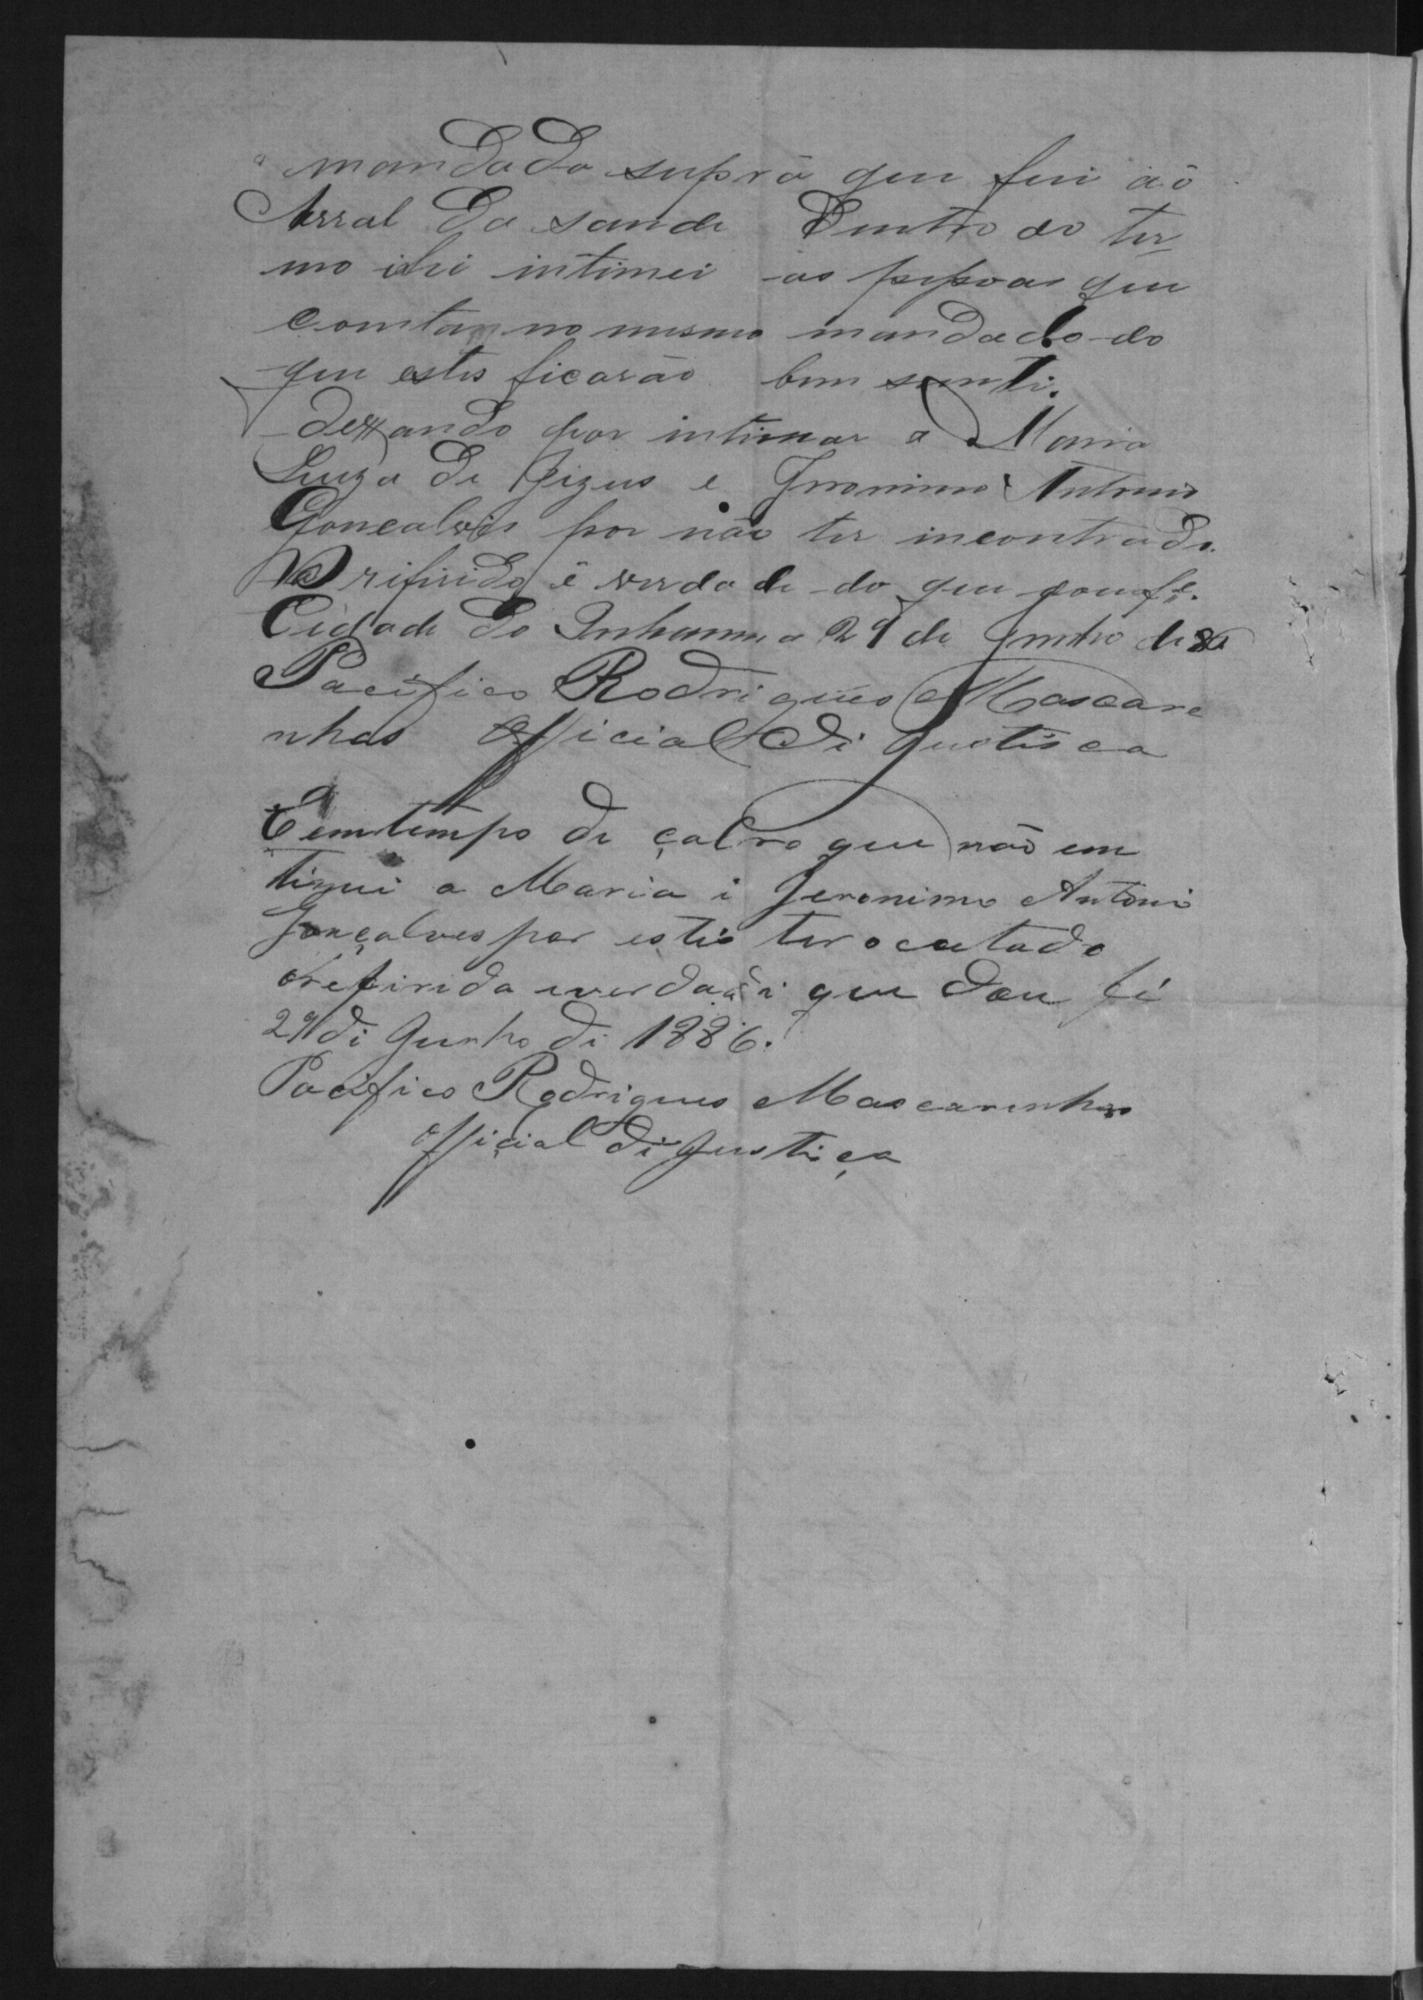 mandado supra que fui aó
Arral da saude dentro do ter
mo ihi intimei as pessoas que
constam no mesmo mandado do
que estes ficarão bem senti.
dexando por intimar a Maria
Luiza de Jizus e Jeronimo Antonio
Goncalvis por não ter incontrado.
O rifirido é verdade do que dou fé.
Cidade do Inhauma 29 de Junho de 86
Pacifico Rodrigues Mascare
nhas official di Justisca
Eemtempo di çalvo que não em
timei a Maria i Jeronimo Antoni
Gonçalves por estis ter ocultado
orefirida everdadi que dou fé
29 di Junho di 1886.
Pacifico Rodrigues Mascarenhas
official di Justiça